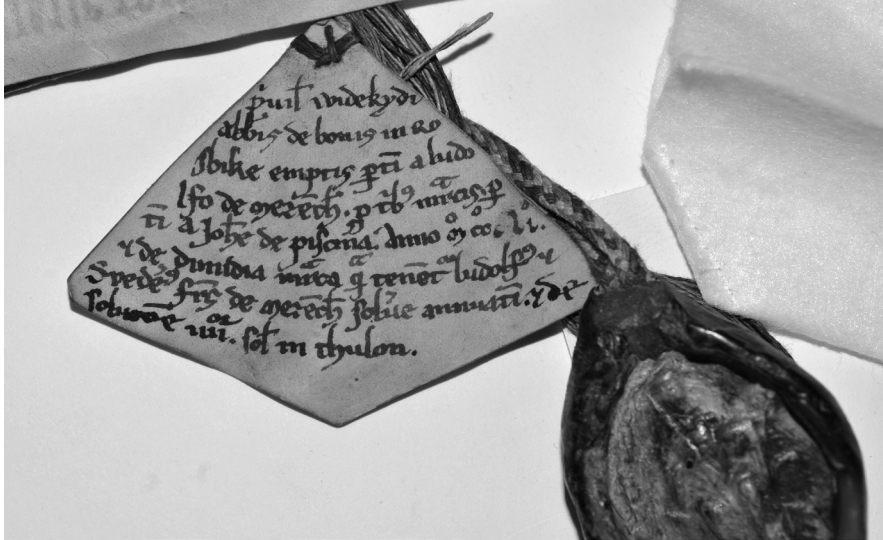 p'uil' widekydi
abb'is de bonis in Ro
sbike emptis p̱ti a ludo
lfo de merēch. p tb9 mrcis p̱
ti a Joh'e de piscina. Anno mo co c Li.
⁊ de dimidia mrca q̄ tenēt ludolf9 ⁊
Svede9 frs de merēch solue annuati. ⁊ de
iiii. sol' in thulon.